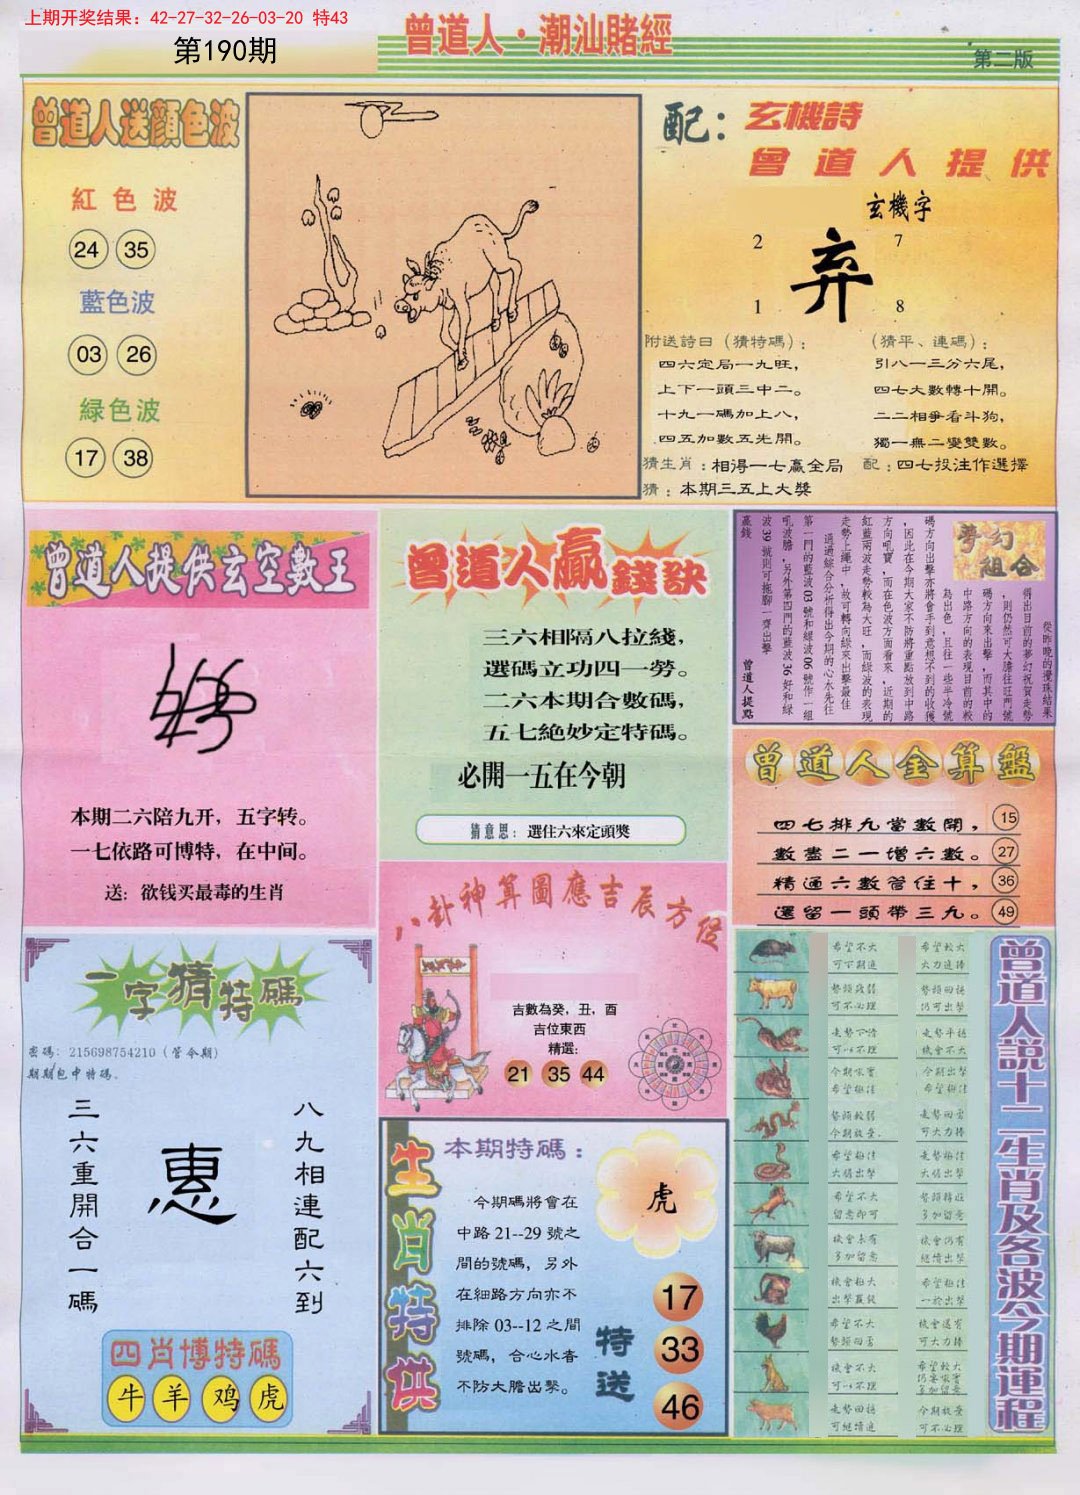 上期开奖结果：42-27-32-26-03-20 特43
第190期
曾道人·潮汕賭經
第二版
曾道人送顏色波
紅色波
24 35
藍色波
03 26
緑色波
17 38
配：玄機詩
曾道人提供
玄機字
2 7
弃
1 8
附送詩曰（猜特碼）：
四六定局一九旺，
上下一頭三中二。
十九一碼加上八，
四五加數五光開。
（猜平、連碼）：
引八一三分六尾，
四七大數轉十開。
二二相爭看斗狗，
獨一無二變雙數。
猜生肖：相得一七贏全局
配：四七投注作選擇
猜：本期三五上大獎
曾道人提供玄空數王
本期二六陪九开，五字转。
一七依路可博特，在中间。
送：欲钱买最毒的生肖
曾道人贏錢訣
三六相隔八拉綫，
選碼立功四一勞。
二六本期合數碼，
五七絶妙定特碼。
必開一五在今朝
猜意思：選住六來定頭獎
夢幻組合
從昨晚的攪珠結果
得出目前的夢幻祝賀走勢
，則仍然可大膽往旺門號
碼方向來出擊，而其中的
中路方向的表現目前的較
為出色，且往一些半冷號
碼方向出擊亦將會手到意想不到的收獲
，因此在今期大家不防將重點放到中路
方向吼實，而在色波方面看來，近期的
紅藍兩波走勢較為大旺，而綠波的表現
走勢上繩中，故可轉向綠來出擊最佳
通過綜合分析得出今期的心水先往
第一門的藍波03號和綠波06號作一組
吼波膽，另外第四門的藍波36好和綠
波39號則可拖腳一齊出擊
贏錢
曾道人提點
曾道人金算盤
四七排九當數開， 15
數盡二一增六數。 27
精通六數管住十， 36
還留一頭帶三九。 49
八卦神算圖應吉辰方位
吉數為癸，丑，酉
吉位東西
精選：
21 35 44
一字猜特碼
密碼：215698754210（管令期）
期期包中特碼。
三六重開合一碼
惠
八九相連配六到
四肖博特碼
牛 羊 鸡 虎
生肖特供
本期特碼：
今期碼將會在
中路21--29 號之
間的號碼，另外
在細路方向亦不
排除 03--12 之間
號碼，合心水者
不防大膽出擊。
虎
特送
17
33
46
曾道人說十二生肖及各波今期運程
希望不大
可下期進
希望較大
大力進捧
可不必理
仍可出擊
機會不大
今期出擊
今期放棄
可大力捧
大膽出擊
希望不大
留意即可
多加留意
機會未有
多加留意
機會仍有
繼續出擊
機會極大
希望不大
機會還有
可大力捧
機會不大
希望較大
多加留意
走勢回穩
可繼續進
今期放棄
可不必理